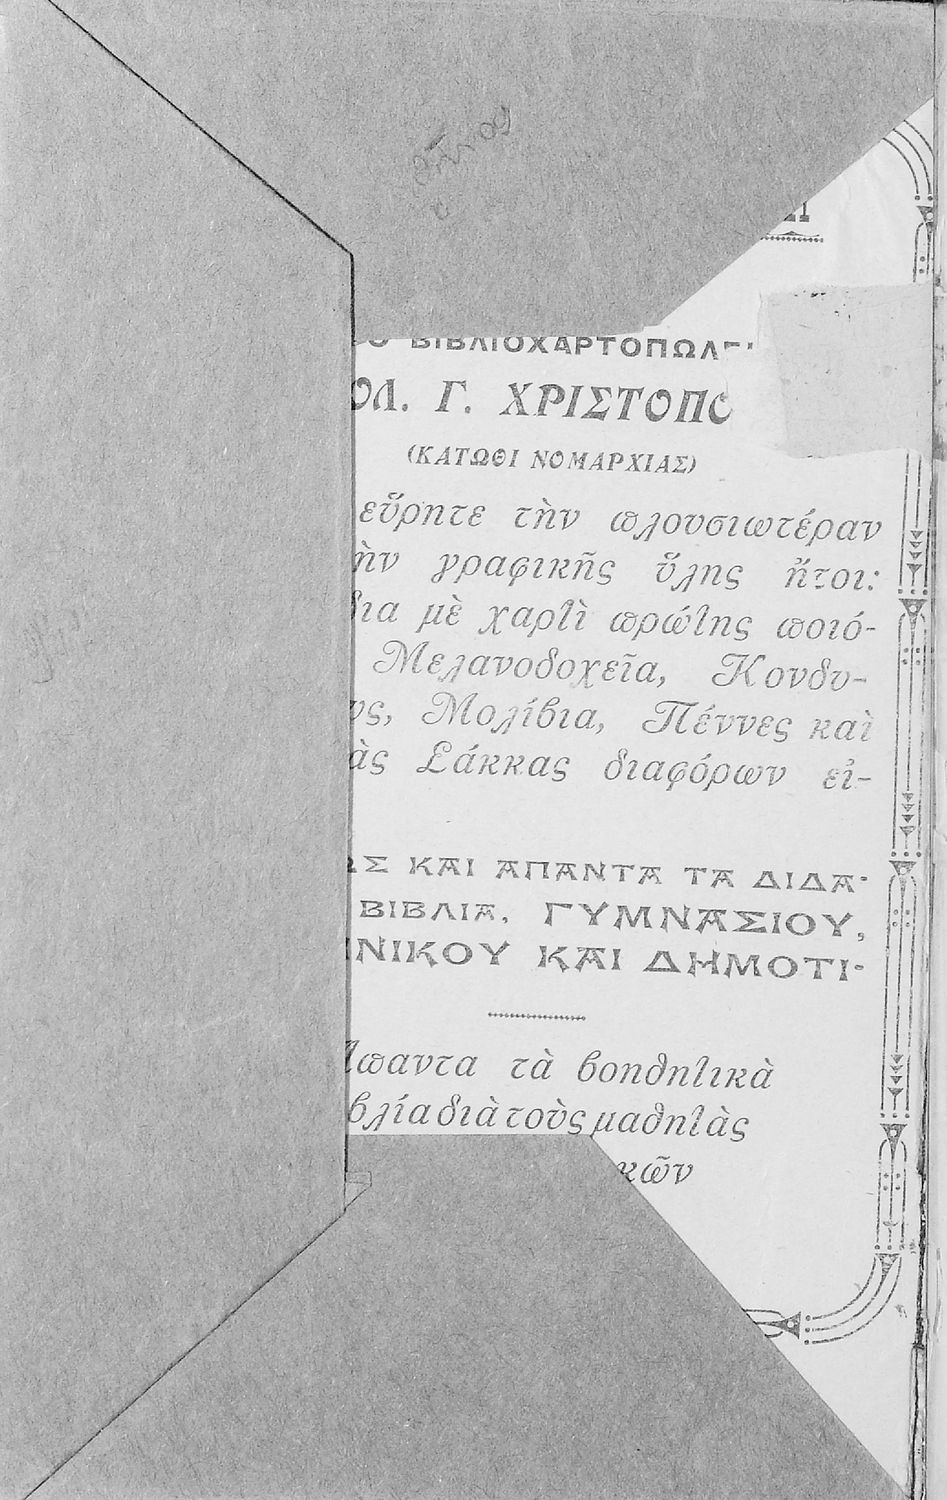 ΒΙΒΛΙΟΧΑΡΤΟΠΩΛΕΙ
ΟΛ. Γ. ΧΡΙΣΤΟΠΟ
(ΚΑΤΩΘΙ ΝΟΜΑΡΧΙΑΣ)
εὕρητε τὴν πλουσιωτέραν
ὴν γραφικῆς ὕλης ἤτοι:
δια μὲ χαρτὶ πρώτης ποιό-
Μελανοδοχεῖα, Κονδυ-
υς, Μολίβια, Πέννες καὶ
ὰς Σάκκας διαφόρων εἰ-
ΩΣ ΚΑΙ ΑΠΑΝΤΑ ΤΑ ΔΙΔΑ-
ΒΙΒΛΙΑ, ΓΥΜΝΑΣΙΟΥ,
ΗΝΙΚΟΥ ΚΑΙ ΔΗΜΟΤΙ-
παντα τὰ βοηθητικὰ
βλία διὰ τοὺς μαθητὰς
κῶν